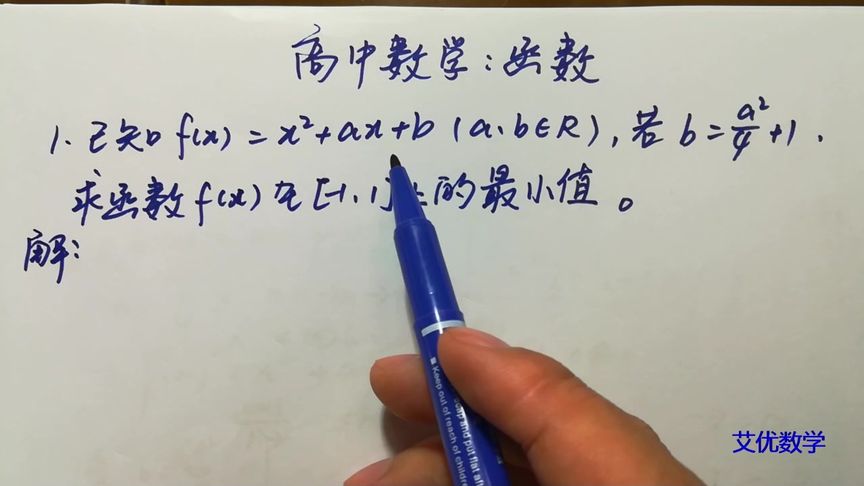 高中数学:函数
1. 已知 f(x) = x²+ax+b (a、b∈R), 若 b = a²/4 +1.
求函数 f(x) 在 [-1, 1] 上的最小值。
解:
Keep out of reach of children
cap and put flat
艾优数学